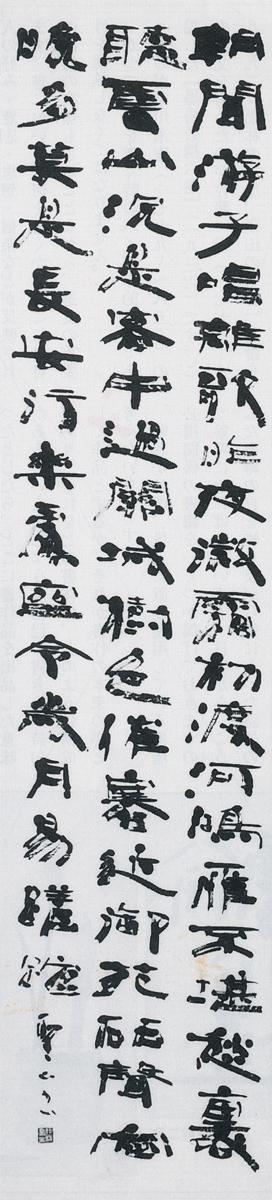 朝聞游子唱離歌昨夜微霜初渡河鴻雁不堪愁裏
聽雲山況是客中過關城樹色催寒近御苑砧聲向
晚多莫是長安行樂處空令歲月易蹉跎